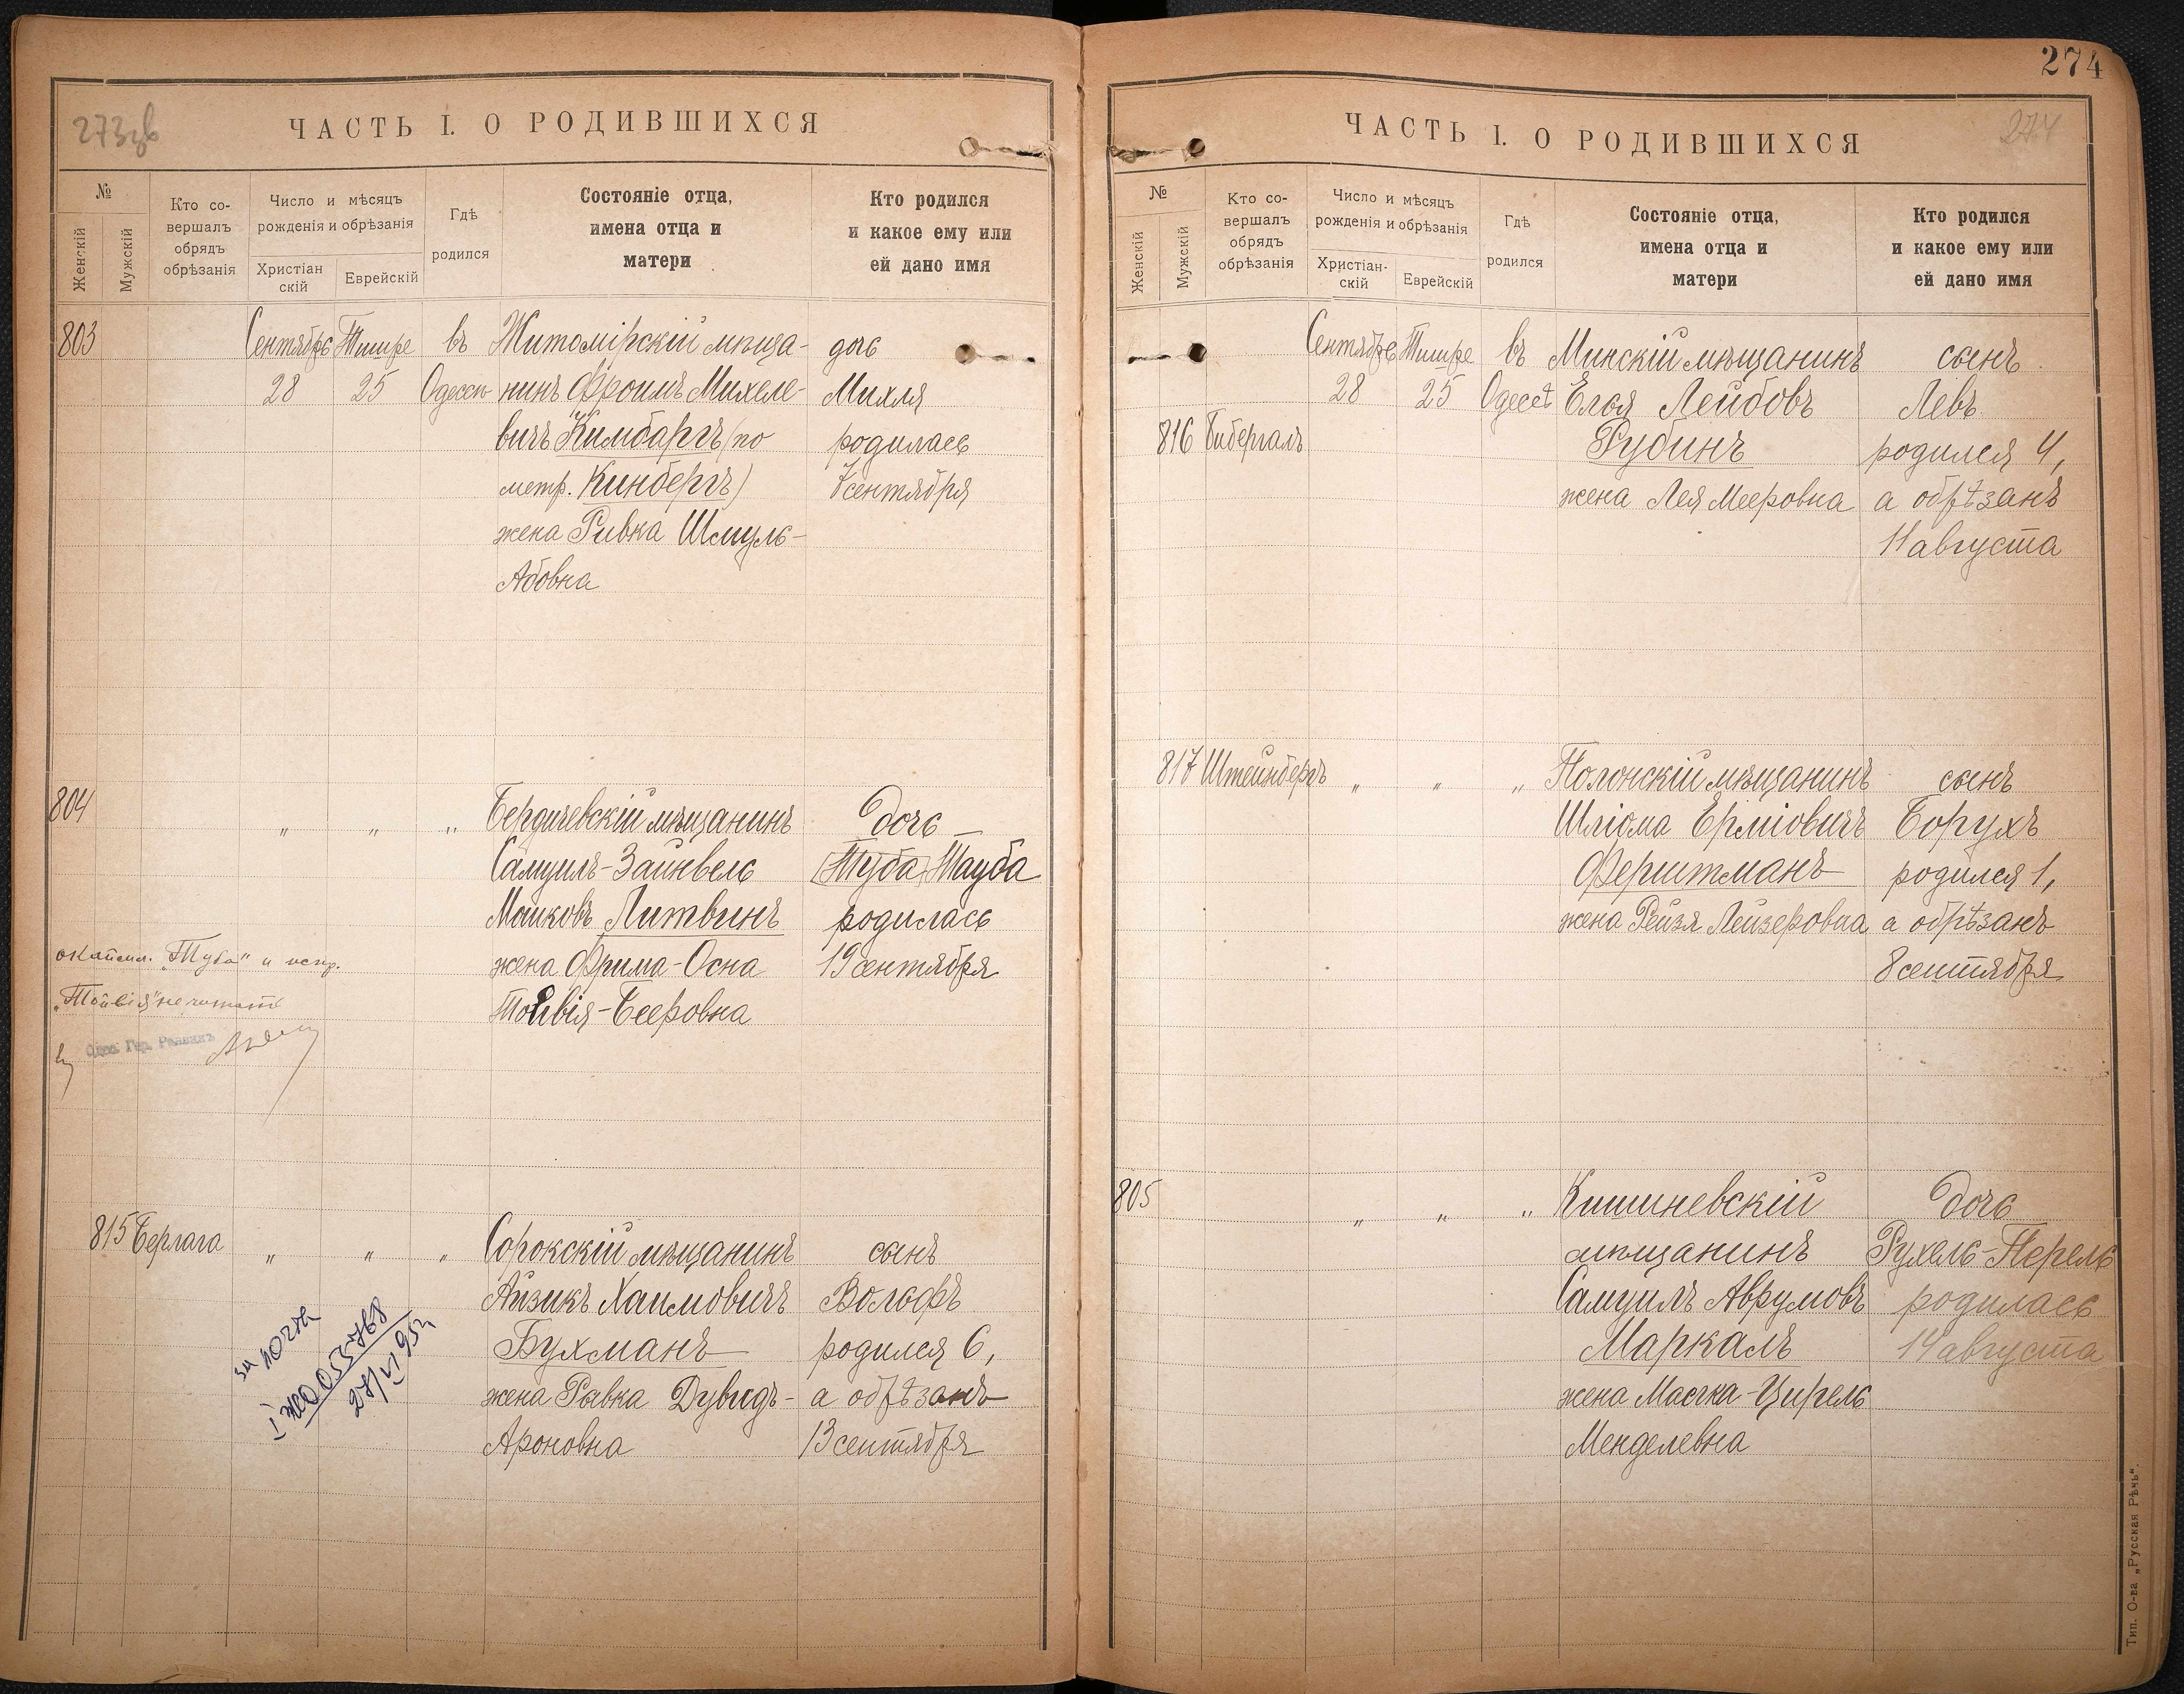 273об
ЧАСТЬ I. О РОДИВШИХСЯ
№
Женскій
Мужскій
Кто со-
вершалъ
обрядъ
обрѣзанія
Число и мѣсяцъ
рожденія и обрѣзанія
Христіан
скій
Еврейскій
Гдѣ
родился
Состояніе отца,
имена отца и
матери
Кто родился
и какое ему или
ей дано имя
803 Сентября Тишре въ Житомірскій мѣща- дочь
28 25 Одессѣ нинъ Фроимъ Михеле- Михля
вичъ Кимбаргъ (по родилась
метр. Кинбергъ) 7 сентября
жена Ривка Шмуль-
Абовна
804 „ „ „ Бердичевскій мѣщанинъ дочь
Самуилъ-Зайнвель (Туба) Тауба
Мошковъ Литвинъ родилась
жена Фрима-Осна 19 сентября
Товія-Бееровна
„Туба" и испр.
не читать
Одес. Гор. Раввинъ
815 Берлага „ „ „ Сорокскій мѣщанинъ сынъ
Айзикъ Хаимовичъ Вольфъ
Бухманъ родился 6,
жена Ривка Дувидъ- а обрѣзанъ
Ароновна 13 сентября
274
274
ЧАСТЬ I. О РОДИВШИХСЯ
№
Женскій
Мужскій
Кто со-
вершалъ
обрядъ
обрѣзанія
Число и мѣсяцъ
рожденія и обрѣзанія
Христіан-
скій
Еврейскій
Гдѣ
родился
Состояніе отца,
имена отца и
матери
Кто родился
и какое ему или
ей дано имя
Сентября Тишре въ Минскій мѣщанинъ сынъ
28 25 Одессѣ Елья Лейбовъ Левъ
816 Гибергалъ Рубинъ родился 4,
жена Лея Мееровна а обрѣзанъ
11 августа
817 Штейнбергъ „ „ „ Полонскій мѣщанинъ сынъ
Шліома Ерміовичъ Борухъ
Ферштманъ родился 1,
жена Рейзя Лейзеровна а обрѣзанъ
8 сентября
805 „ „ „ Кишиневскій дочь
мѣщанинъ Рухель-Перель
Самуилъ Аврумовъ родилась
Маркаль 14 августа
жена Масяка-Цирель
Менделевна
Тип. О-ва „Русская Рѣчь".